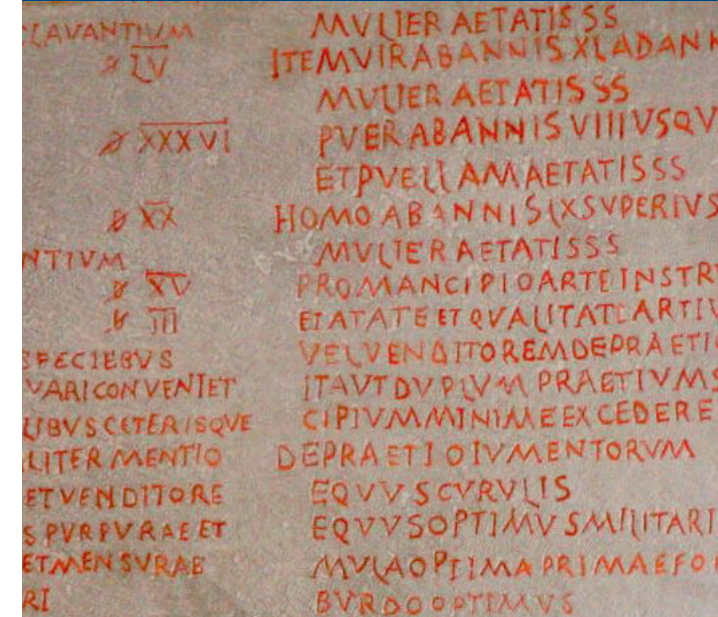 CLAVANTIVM
𐆖 L̅V̅
𐆖 X̅X̅X̅V̅I̅
𐆖 X̅X̅
NTIVM
𐆖 X̅V̅
𐆖 I̅I̅I̅
SPECIEBVS
VARI CONVENIET
LIBVS CETERISQVE
LITER MENTIO
ET VENDITORE
S PVRPVRAE ET
ET MENSVRAB
RI
MVLIER AETATIS SS
ITEM VIR AB ANNIS XL AD ANN
MVLIER AETATIS SS
PVER AB ANNIS VIII VSQV
ET PVELLAM AETATIS SS
HOMO AB ANNIS LX SVPERIVS
MVLIER AETATIS SS
PRO MANCIPIO ARTE INSTRV
ETATATE ET QVALITATE ARTIV
VEL VENDITOREM DE PRAETIO
ITA VT DVPLVM PRAETIVM S
CIPIVM MINIME EXCEDERE
DE PRAETIO IVMENTORVM
EQVVS CVRVLIS
EQVVS OPTIMVS MILITARI
MVLA OPTIMA PRIMAE FO
BVRDO OPTIMVS